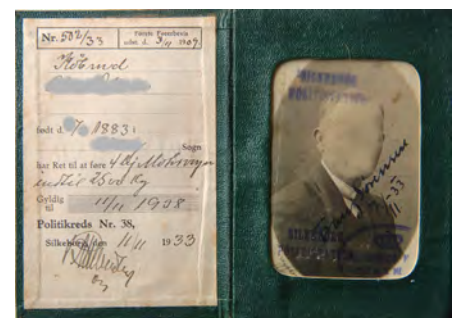 Nr. 502/33
Første Førerbevis
udst. d. 3/11 1909
Købmd
født d. /10 1883 i
Sogn
har Ret til at føre 4 Hj Motorvogn
indtil 2500 Kg
Gyldig til 11/11 1938
Politikreds Nr. 38,
Silkeborg, den 11/11 1933
SILKEBORG
POLITISTATION
Sørensen
11/11-33
SILKEBORG